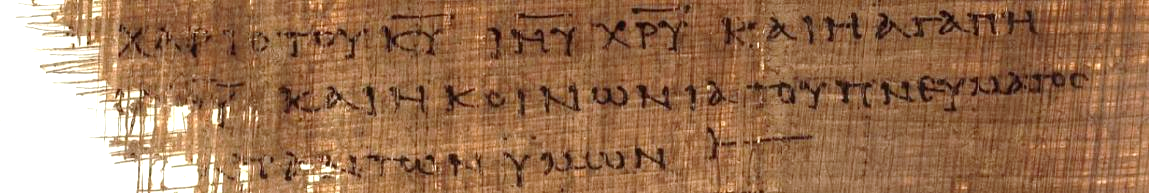 ΧΑΡΙϹ ΤΟΥ Κ̅Υ̅ Ι̅Η̅Υ̅ Χ̅Ρ̅Υ̅ ΚΑΙ Η ΑΓΑΠΗ
ΚΑΙ Η ΚΟΙΝΩΝΙΑ ΤΟΥ ΠΝΕΥΜΑΤΟϹ
ΜΕΤΑ ΠΑΝΤΩΝ ΥΜΩΝ